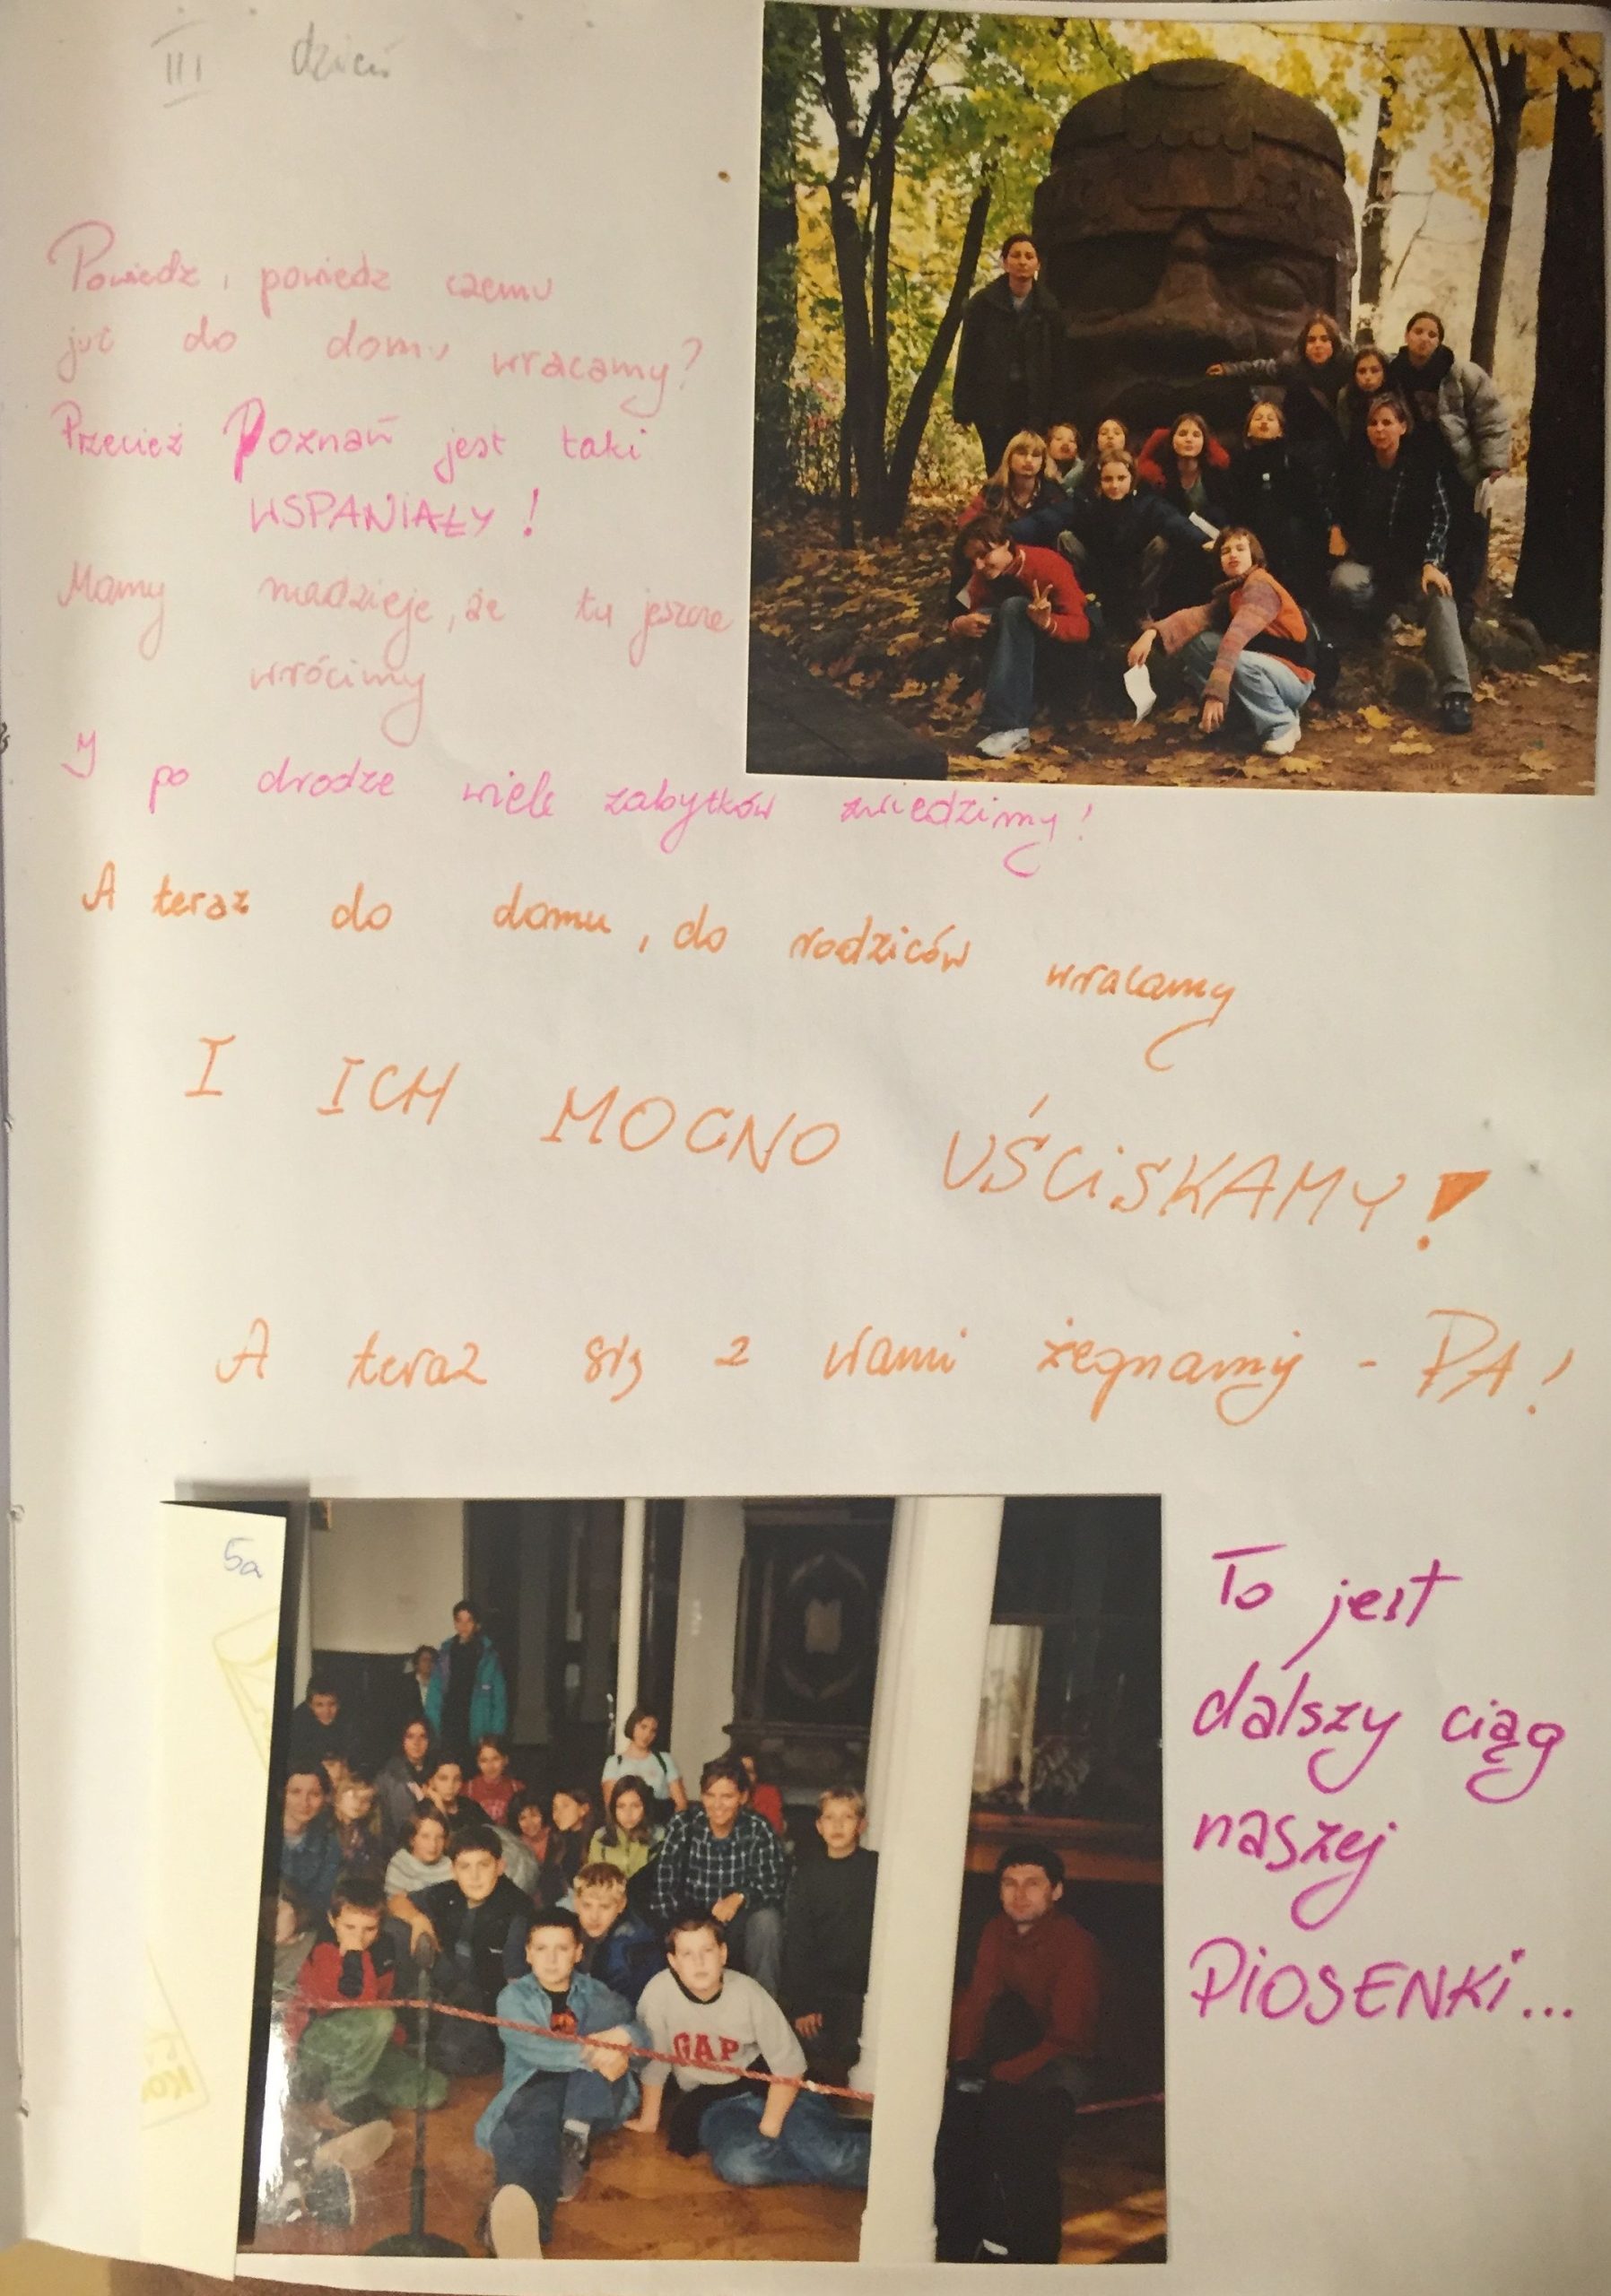 III dzień
Powiedz, powiedz czemu
już do domu wracamy?
Przecież Poznań jest taki
WSPANIAŁY!
Mamy nadzieję, że tu jeszcze
wrócimy
I po drodze wiele zabytków zwiedzimy!
A teraz do domu, do rodziców wracamy
I ICH MOCNO UŚCISKAMY!
A teraz się z wami żegnamy - PA!
5a
GAP
To jest
dalszy ciąg
naszej
PIOSENKI...